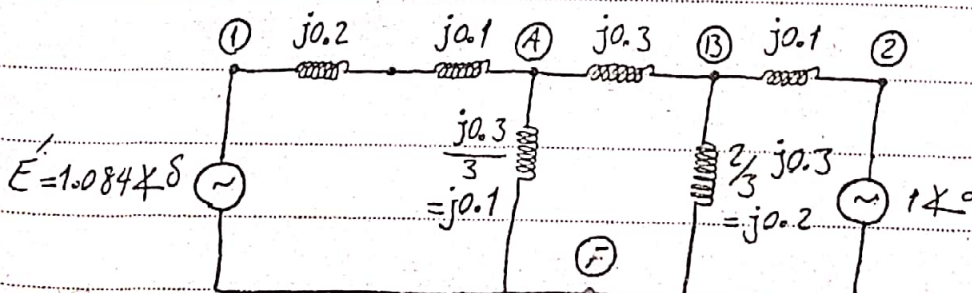 ① j0.2 j0.1 Ⓐ j0.3 Ⓑ j0.1 ②
E'=1.084∡δ
j0.3
3
=j0.1
2/3 j0.3
=j0.2
1∡0
Ⓕ